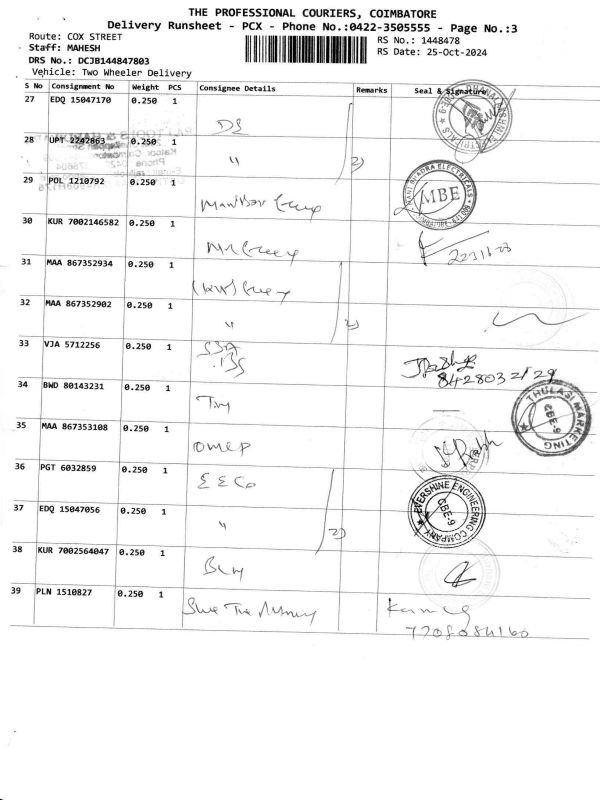 THE PROFESSIONAL COURIERS, COIMBATORE
Delivery Runsheet - PCX - Phone No.:0422-3505555 - Page No.:3
Route: COX STREET
RS No.: 1448478
Staff: MAHESH
RS Date: 25-Oct-2024
DRS No.: DCJB144847803
Vehicle: Two Wheeler Delivery
S No Consignment No Weight PCS Consignee Details Remarks Seal & Signature
27 EDQ 15047170 0.250 1
DS
28 UPT 2242863 0.250 1
" 2)
29 POL 1210792 0.250 1
MANI BHADRA ELECTRICALS
MBE
30 KUR 7002146582 0.250 1
31 MAA 867352934 0.250 1
32 MAA 867352902 0.250 1
" 2)
33 VJA 5712256 0.250 1
8428032129
34 BWD 80143231 0.250 1
THULASI MARKETING
CBE-9
35 MAA 867353108 0.250 1
OMEP
36 PGT 6032859 0.250 1
E E Co
37 EDQ 15047056 0.250 1
" 2)
EVERSHINE ENGINEERING COMPANY
CBE-9
38 KUR 7002564047 0.250 1
39 PLN 1510827 0.250 1
7708084160